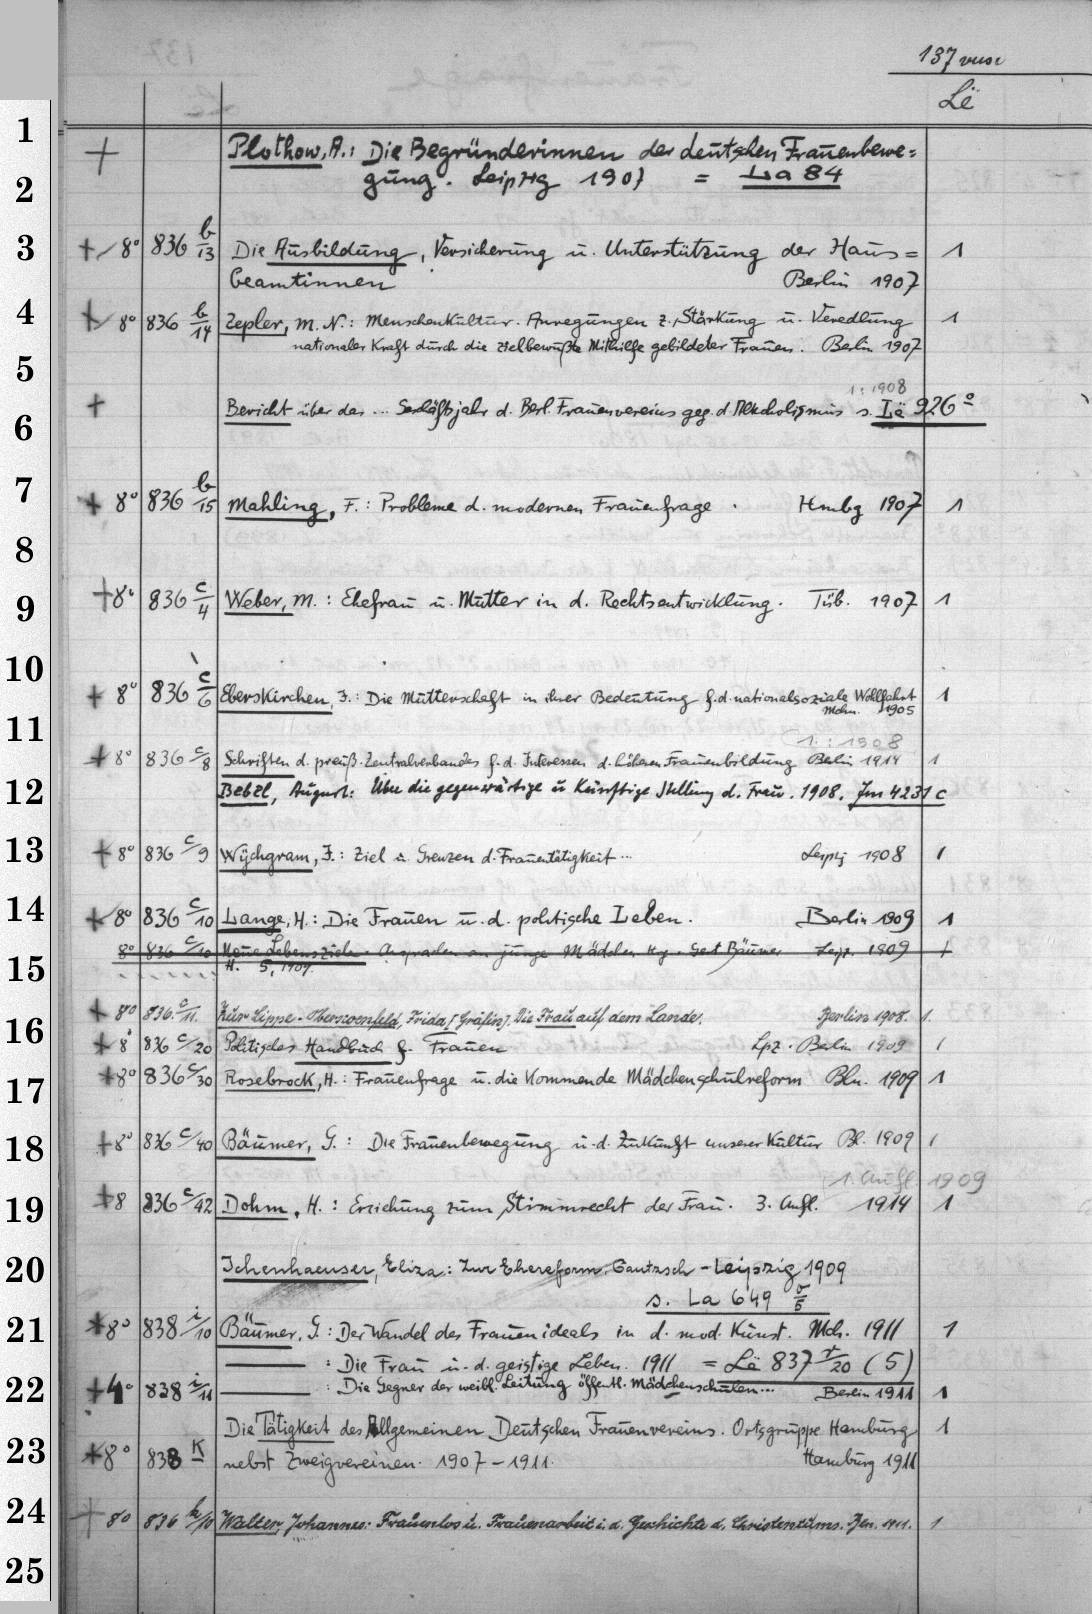 137
Lë
1
+ Plothow, A.: Die Begründerinnen der deutschen Frauenbewe=
2
gung. Leipzig 1907 = La 84
3
+ 8° 836 b/13 Die Ausbildung, Versicherung u. Unterstützung der Haus= 1
beamtinnen Berlin 1907
4
+ 8° 836 b/14 Zepler, M. N.: Menschenkultur. Anregungen z. Stärkung u. Veredlung 1
nationaler Kraft durch die zielbewußte Mithilfe gebildeter Frauen. Berlin 1907
5
1: 1908
+ Bericht über das ... Geschäftsjahr d. Berl. Frauenvereins geg. d. Alkoholismus s. Lë 926°
6
7
+ 8° 836 b/15 Mahling, F.: Probleme d. modernen Frauenfrage. Hmbg 1907 1
8
9
+ 8° 836 c/4 Weber, M.: Ehefrau u. Mutter in d. Rechtsentwicklung. Tüb. 1907 1
10
+ 8° 836 c/6 Eberskirchen, J.: Die Mutterschaft in ihrer Bedeutung f. d. nationalsoziale Wohlfahrt 1
Mchn. 1905
11
1.: 1908
+ 8° 836 c/8 Schriften d. preuß. Zentralverbandes f. d. Interessen d. höheren Frauenbildung Berlin 1914 1
12
Bebel, August: Über die gegenwärtige u Künftige Stellung d. Frau. 1908. Jm 4231 c
13
+ 8° 836 c/9 Wÿchgram, J.: Ziel u. Grenzen d. Frauentätigkeit ... Leipzj 1908 1
14
+ 8° 836 c/10 Lange, H.: Die Frauen u. d. politische Leben. Berlin 1909 1
8° 836 c/10 Neue Lebensziele. Ansprachen an junge Mädchen Hg. Gert Bäumer Leipz. 1909 1
15
H. 5, 1909.
+ 8° 836. c/11. Zur Lippe-Oberschoenfeld, Frida [Gräfin]. Die Frau auf dem Lande. Berlin 1908. 1.
16
+ 8° 836 c/20 Politisches Handbuch f. Frauen Lpz. Berlin 1909 1
17
+ 8° 836 c/30 Rosebrock, H.: Frauenfrage u. die Kommende Mädchenschulreform Bln. 1909 1
18
+ 8° 836 c/40 Bäumer, G.: Die Frauenbewegung u. d. Zukunft unserer Kultur Bl. 1909 1
1. Aufl. 1909
19
+ 8 836 c/42 Dohm, H.: Erziehung zum Stimmrecht der Frau. 3. Aufl. 1914 1
20
Ichenhaeuser, Eliza: Zur Ehereform. Gautzsch - Leipzig 1909
s. La 649
21
+ 8° 838 i/10 Bäumer, G.: Der Wandel des Frauenideals in d. mod. Kunst. Mch. 1911 1
——— : Die Frau u. d. geistige Leben. 1911 = Lë 837 r/20 (5)
22
+ 4° 838 i/11 ——— : Die Gegner der weibl. Leitung öffentl. Mädchenschulen... Berlin 1911 1
Die Tätigkeit des Allgemeinen Deutschen Frauenvereins. Ortsgruppe Hamburg 1
23
+ 8° 838 K nebst Zweigvereinen. 1907 - 1911. Hamburg 1911
24
+ 8° 836 k/10 Walter, Johannes: Frauenlos u. Frauenarbeit i. d. Geschichte d. Christentums. Bln. 1911. 1
25